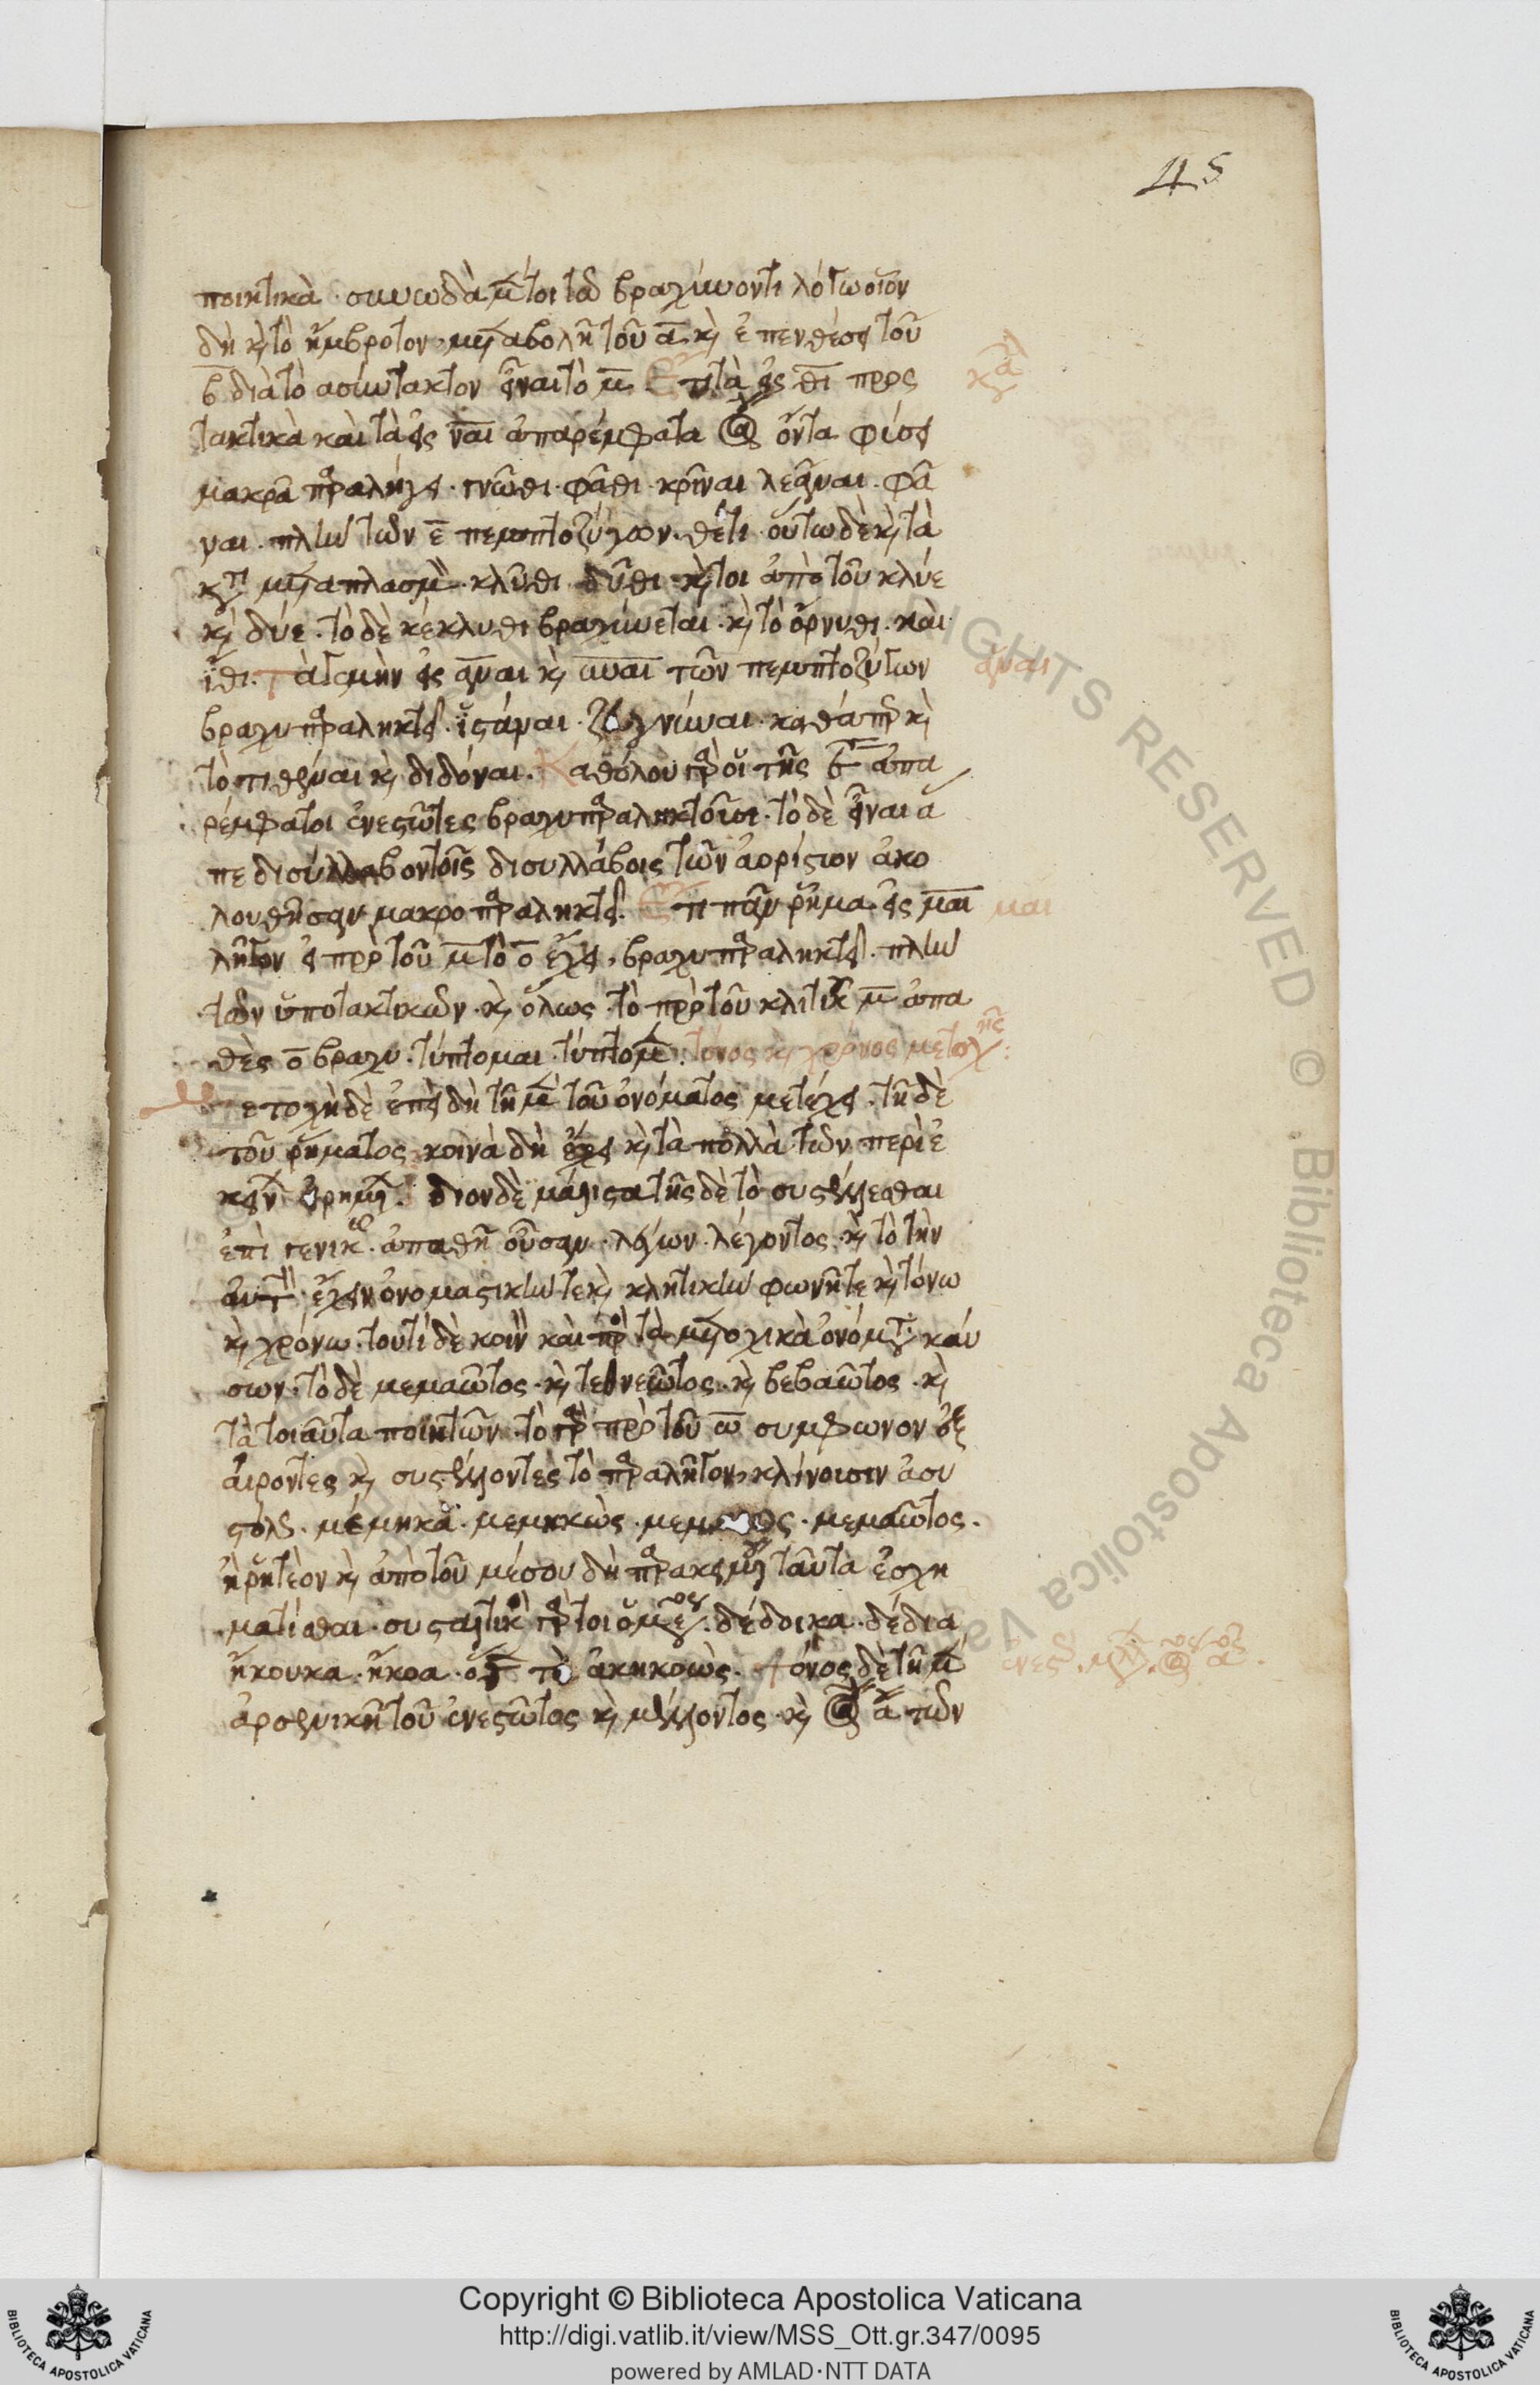 45
ποιητικὰ · συνωδὰ μέντοι τῶ βραχύνοντι λόγω οἷον
δὴ καὶ τὸ ἤμβροτον, μεταβολῆ τοῦ α καὶ ἐπενθέσει τοῦ
β διὰ τὸ ἀσύντακτον εἶναι τὸ μ. Ἔτι τὰ εἰς θι προσ
τακτικὰ καὶ τὰ εἰς ναι ἀπαρέμφατα ὄντα φύσει
μακρᾶ παραλήγει · γνῶθι · φᾶθι · κρῖναι λεᾶναι · φᾶ
ναι · πλὴν τῶν ε πεμπτοσυζύγων · θέτι · οὕτω δὲ καὶ τὰ
κατὰ μεταπλασμὸν · κλῦθι δῦθι · καίτοι ἀπὸ τοῦ κλύε
καὶ δύε · τὸ δὲ κέκλυθι βραχύνεται · καὶ τὸ ὄρνυθι · καὶ
ἴθι. Τά γε μὴν εἰς αναι καὶ υναι τῶν πεμπτοσυζύγων
αναι
βραχυπαραληκτεῖ · ἱστάναι · ζευγνύναι · καθάπερ καὶ
τὸ τιθέναι καὶ διδόναι. Καθόλου γὰρ οἱ τῆς β ἀπα
ρέμφατοι ἐνεστῶτες βραχυπαραληκτοῦσι · τὸ δὲ εἶναι ἅ
τε δισυλλαβοῦν τοῖς δισυλλάβοις τῶν ἀορίστων ἀκο
λουθῆσαν μακροπαραληκτεῖ. Ἔτι πᾶν ῥῆμα εἰς μαι
μαι
λῆγον εἰ πρὸ τοῦ μ τὸ ο ἔχει, βραχυπαραληκτεῖ · πλὴν
τῶν ὑποτακτικῶν · καὶ ὅλως τὸ πρὸ τοῦ κλιτικοῦ μ ἀπα
θὲς ο βραχὺ · τύπτομαι · τύπτομεν : τόνος καὶ χρόνος μετοχῆς :
Μετοχὴ δὲ ἐπεὶ δὴ τῆ μὲν τοῦ ὀνόματος μετέχει · τῆ δὲ
τοῦ ῥήματος · κοινὰ δὴ ἔχει καὶ τὰ πολλὰ τῶν περὶ ἐ
κείνων εἰρημένων · ἴδιον δὲ μάλιστα τῆσδε τὸ συστέλλεσθαι
ἐπὶ γενικῆς ἀπαθῆ οὖσαν · λέγων · λέγοντος · καὶ τὸ τὴν
αὐτὴν ἔχειν ὀνομαστικήν τε καὶ κλητικὴν φωνῆ τε καὶ τόνω
καὶ χρόνω · τουτὶ δὲ κοινὸν καὶ πρὸς τὰ μετοχικὰ ὀνόματα · καύ
σων · τὸ δὲ μεμαῶτος · καὶ τεθνεῶτος · καὶ βεβαῶτος · καὶ
τὰ τοιαῦτα ποιητῶν · τὸ γὰρ πρὸ τοῦ ω σύμφωνον ἐξ
αίροντες καὶ συστέλλοντες τὸ παραλῆγον, κλίνουσιν ἀσυ
στόλως · μέμηκα · μεμηκὼς · μεμαῶτος.
ἢ ῥητέον καὶ ἀπὸ τοῦ μέσου δὴ παρακειμένου ταῦτα ἐσχη
ματίσθαι · συσταλτικὸς γάρ τοι ὁ μέσος · δέδοικα · δέδια
ἤκουκα · ἤκοα · ὅθεν τὸ ἀκηκοώς. Τόνος δὲ τῆ μὲν
ἀρσενικῆ τοῦ ἐνεστῶτος καὶ μέλλοντος · καὶ α τῶν